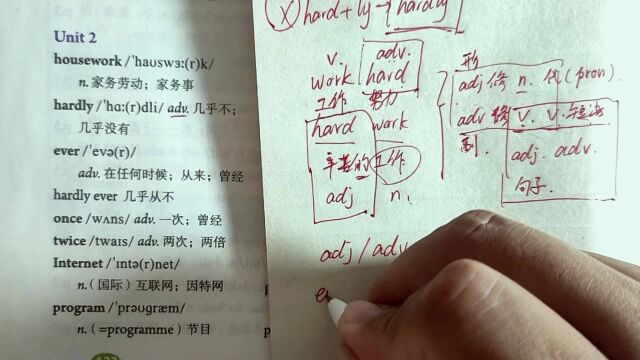 Unit 2
housework /ˈhaʊswɜː(r)k/
n. 家务劳动；家务事
hardly /ˈhɑː(r)dli/ adv. 几乎不；
几乎没有
ever /ˈevə(r)/
adv. 在任何时候；从来；曾经
hardly ever 几乎从不
once /wʌns/ adv. 一次；曾经
twice /twaɪs/ adv. 两次；两倍
Internet /ˈɪntə(r)net/
n.（国际）互联网；因特网
program /ˈprəʊɡræm/
n.（=programme）节目
(X) hard+ly → hardly
v. adv.
work hard
工作 努力
hard work
辛苦的 工作
adj n.
adj/adv
形
adj 修 n. 代(pron)
adv 修 v. v.
副. adj. adv.
句子.